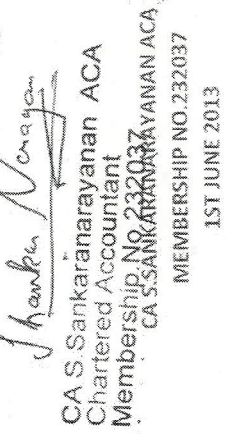 Shankar Narayan
CA S.Sankaranarayanan ACA
Chartered Accountant
Membership. No. 232037
CA S.SANKARANARAYANAN ACA
MEMBERSHIP NO.232037
1ST JUNE 2013